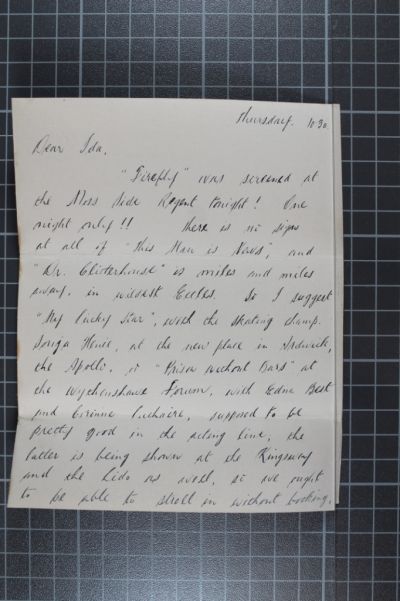 Thursday. 10.30.
Dear Ida,
"Firefly" was screened at
the Moss Side Regent tonight! One
night only!! There is no signs
at all of "This Man is News", and
"Dr. Clitterhouse" is miles and miles
away, in wildest Eccles. So I suggest
"My Lucky Star", with the skating champ.
Sonja Henie, at the new place in Ardwick,
the Apollo, or "Prison without Bars" at
the Wythenshawe Forum, with Edna Best
and Corinne Luchaire, supposed to be
pretty good in the acting line, the
latter is being shown at the Kingsway
and the Lido as well, so we ought
to be able to stroll in without booking.